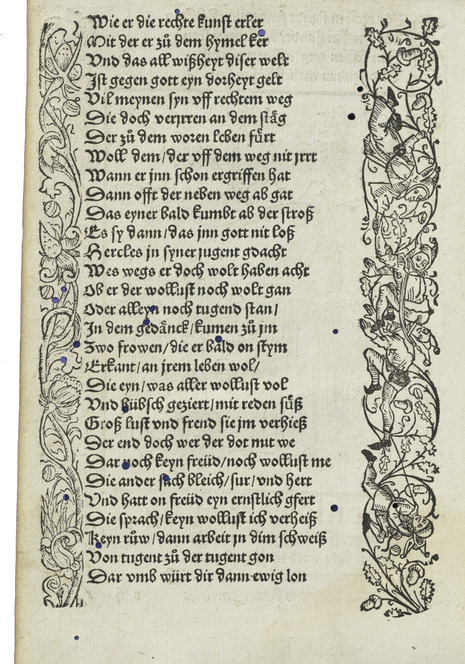 Wie er die rechte kunst erler
Mit der er zů dem hymel ker
Vnd das all wißheyt diser welt
Jst gegen gott eyn dorheyt gelt
Vil meynen syn vff rechtem weg
Die doch verjrren an dem stäg
Der zů dem woren leben fůrt
Woll dem/der vff dem weg nit jrrt
Wann er jnn schon ergriffen hat
Dann offt der neben weg ab gat
Das eyner bald kumbt ab der stroß
Es sy dann/das jnn gott nit loß
Hercles in syner jugent gdacht
Wes wegs er doch wolt haben acht
Ob er der wollust noch wolt gan
Oder alleyn noch tugend stan/
Jn dem gedänck/kumen zů jm
Zwo frowen/die er bald on stym
Erkant/an jrem leben wol/
Die eyn/was aller wollust vol
Vnd hübsch geziert/mit reden sůß
Groß lust vnd freud sie jm verhieß
Der end doch wer der dot mit we
Dar noch keyn freüd/noch wollust me
Die ander sach bleich/sur/vnd hert
Vnd hatt on freüd eyn ernstlich gfert
Die sprach/keyn wollust ich verheiß
Keyn růw/dann arbeit in dim schweiß
Von tugent zů der tugent gon
Dar vmb würt dir dann ewig lon